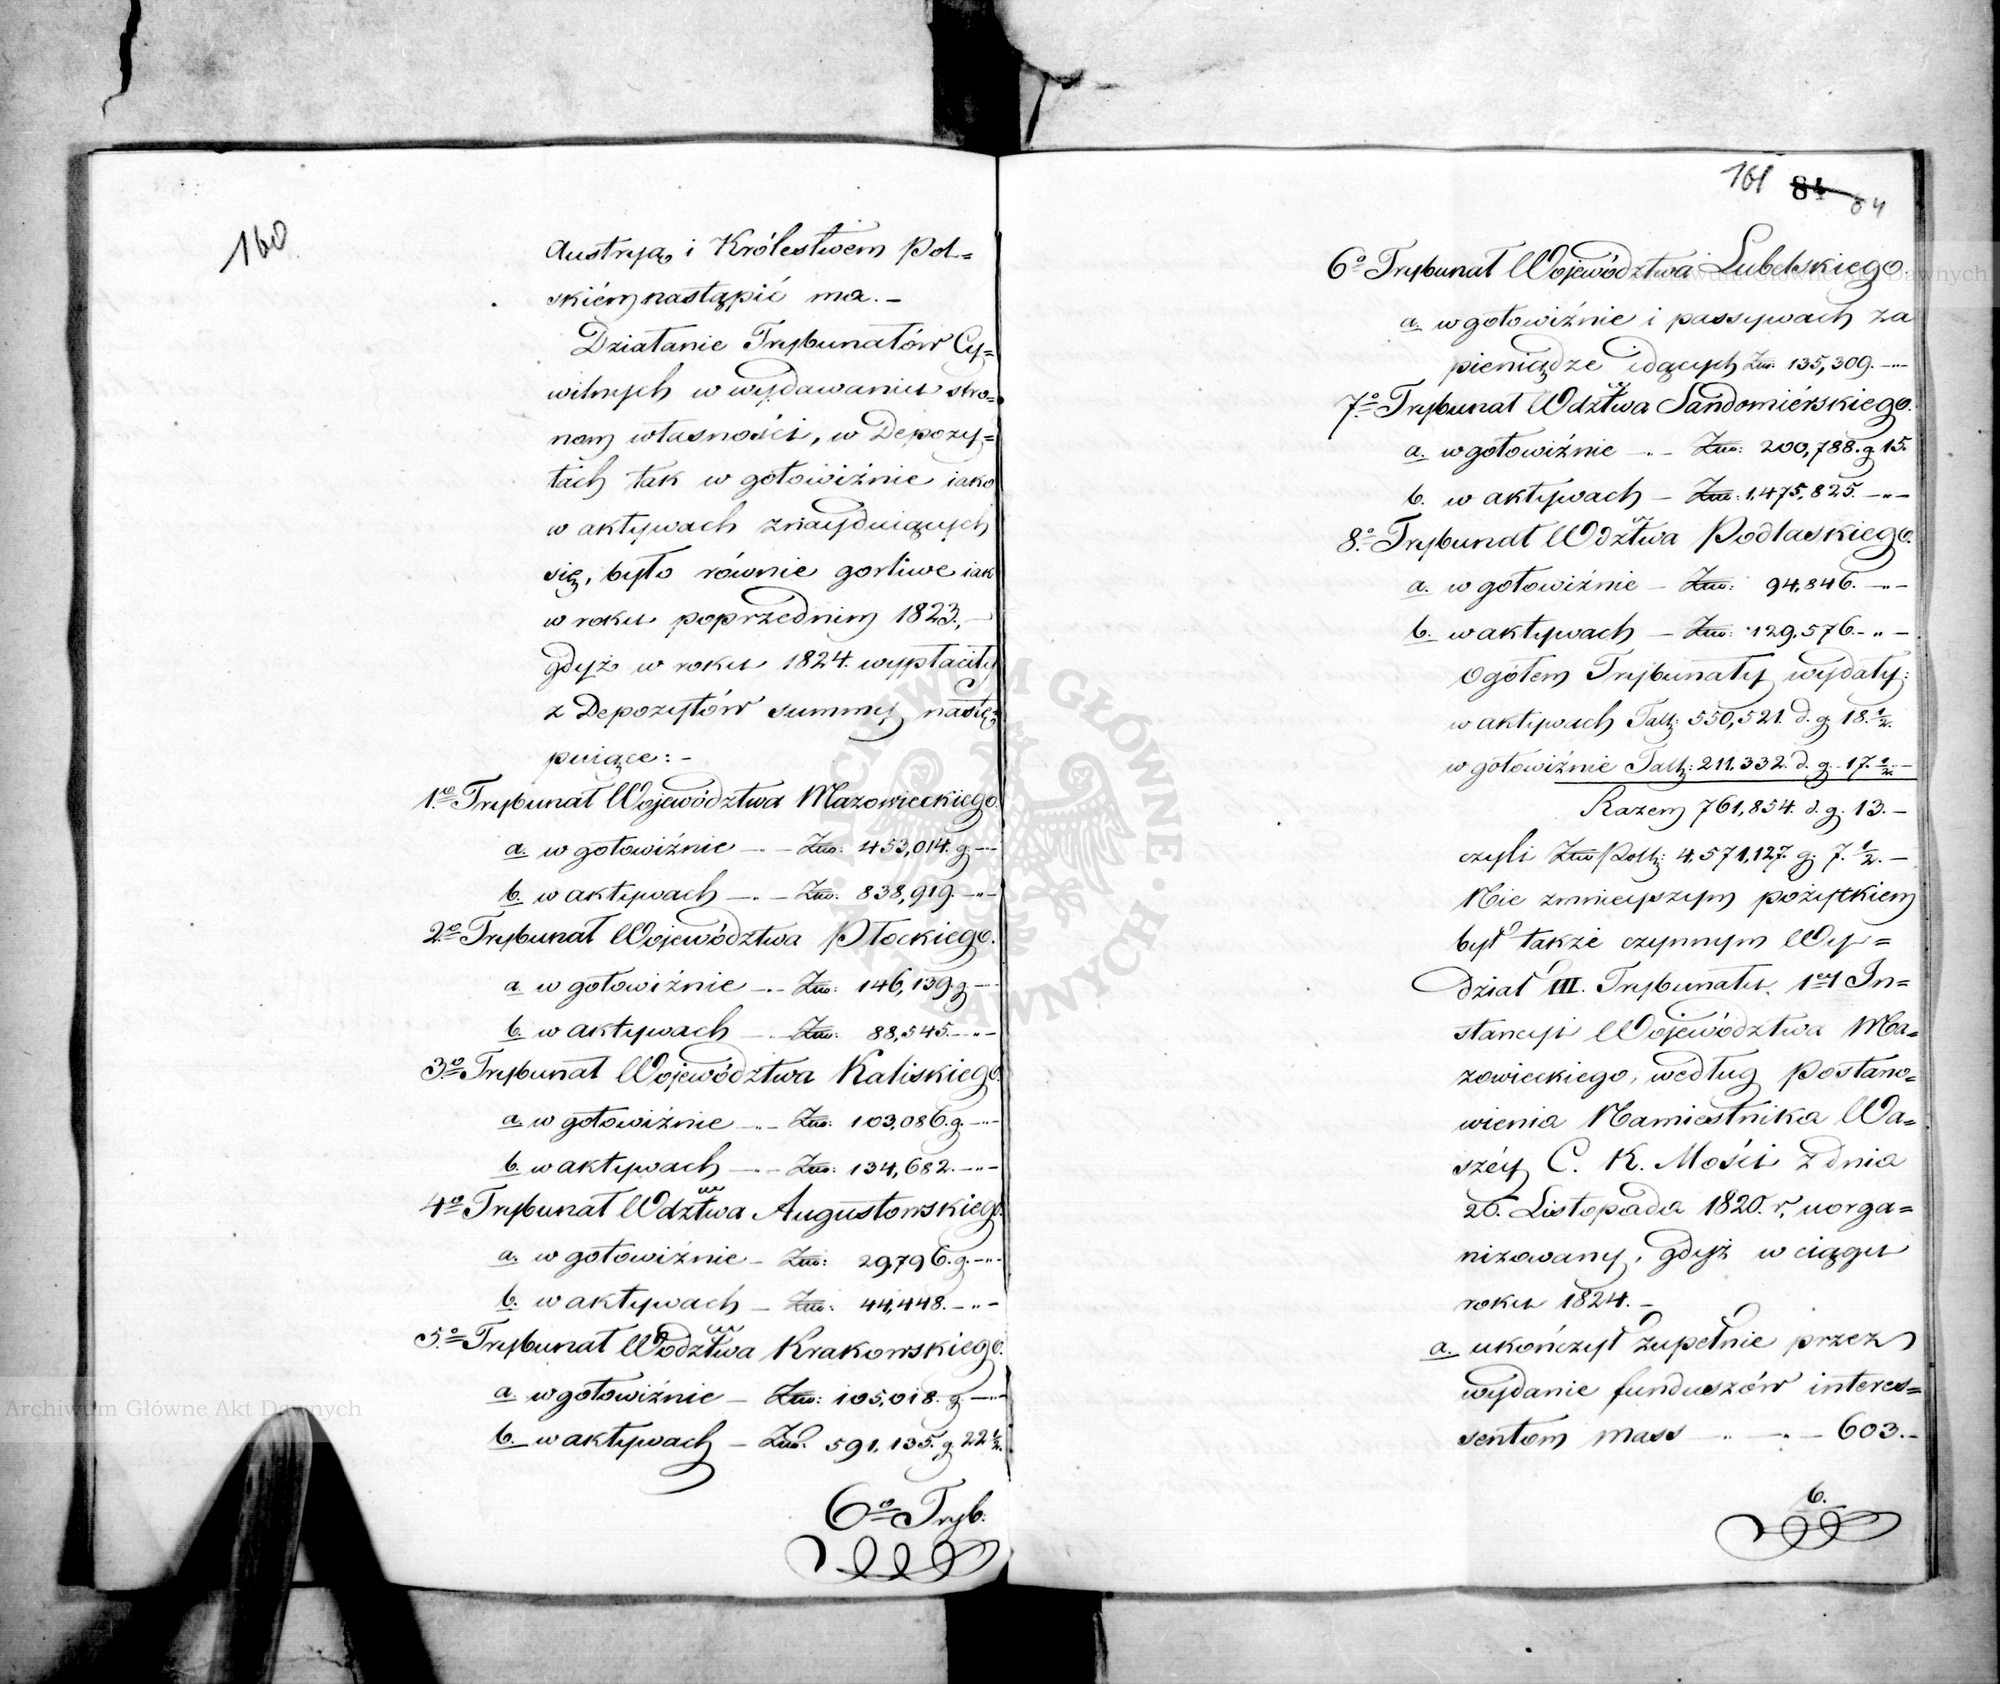 160
Austryą i Królestwem Pol=
skiém nastąpić ma. –
Działanie Trybunałów Cy=
wilnych w wydawaniu stro=
nom własności, w Depozy=
tach tak w gotowiźnie iako
w aktywach znayduiących
się, było równie gorliwe iak
w roku poprzednim 1823, –
gdyż w roku 1824. wypłaciły
z Depozytów summy nastę=
puiące: –
1.º Trybunał Województwa Mazowieckiego.
a. w gotowiźnie –..– Złtt: 453,014. g. –..–
b. w aktywach –..– Złtt: 838,919. –..–
2.º Trybunał Województwa Płockiego.
a. w gotowiźnie –..– Złtt: 146,139. g. –..–
b. w aktywach –..– Złtt: 88,545. –..–
3.º Trybunał Województwa Kaliskiego.
a. w gotowiźnie –..– Złtt: 103,086. g. –..–
b. w aktywach –..– Złtt: 134,682. –..–
4º Trybunał Wdztwa Augustowskiego.
a. w gotowiźnie – Złtt: 29,796. g. –..–
b. w aktywach – Złtt: 44,448. –..–
5.º Trybunał Wodztwa Krakowskiego.
a. w gotowiźnie – Złtt: 105,018. g. –..–
b. w aktywach – Złtt. 591,135. g 22 ½.
6º Tryb:
161 84 84
6º Trybunał Województwa Lubelskiego.
a. w gotowiźnie i passywach za
pieniądze idących Złtt. 135,309. –..–
7.º Trybunał Wdztwa Sandomiérskiego.
a. w gotowiźnie –..– Złtt: 200,788. g 15.
b. w aktywach – Złtt: 1,475,825. –..–
8.º Trybunał Wdztwa Podlaskiego.
a. w gotowiźnie – Złtt: 94,846. –..–
b. w aktywach – Złtt: 129,576. –..–
Ogółem Trybunały wydały:
w aktywach Tall: 550,521. d. g. 18. ½.
w gotowiźnie Tall: 211,332. d. g. 17. ½. –
Razem 761,854. d. g. 13. –
czyli Złtt Poll: 4,571,127. g. 7. ½. –
Nie zmnieyszym pożytkiem
był także czynnym Wy=
dział III. Trybunału 1ey In=
stancyi Województwa Ma=
zowieckiego, według Postano=
wienia Namiestnika Wa=
széy C. K. Mości z dnia
20. Listopada 1820. r. uorga=
nizowany, gdyż w ciągu
roku 1824. –
a. ukończył zupełnie przez
wydanie funduszów interes=
sentom mass –..–..– 603. –
b.
Archiwum Główne Akt Dawnych
ARCHIWUM GŁÓWNE AKT DAWNYCH